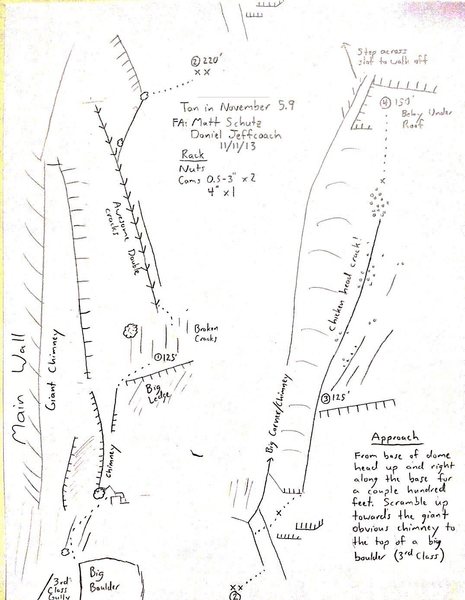 ② 220'
x x
Tan in November 5.9
FA: Matt Schutz
Daniel Jeffcoach
11/11/13
Rack
Nuts
Cams 0.5-3" x 2
4" x 1
Awesome Double
cracks
Main Wall
Giant Chimney
Broken
Cracks
① 125'
Big
Ledge
Chimney
3rd
Class
Gully
Big
Boulder
Step across
slot to walk off
④ 150'
Belay Under
Roof
x
Chicken head crack!
③ 125'
Big Corner/Chimney
x
x x
②
Approach
From base of dome
head up and right
along the base for
a couple hundred
feet. Scramble up
towards the giant
obvious chimney to
the top of a big
boulder (3rd Class)